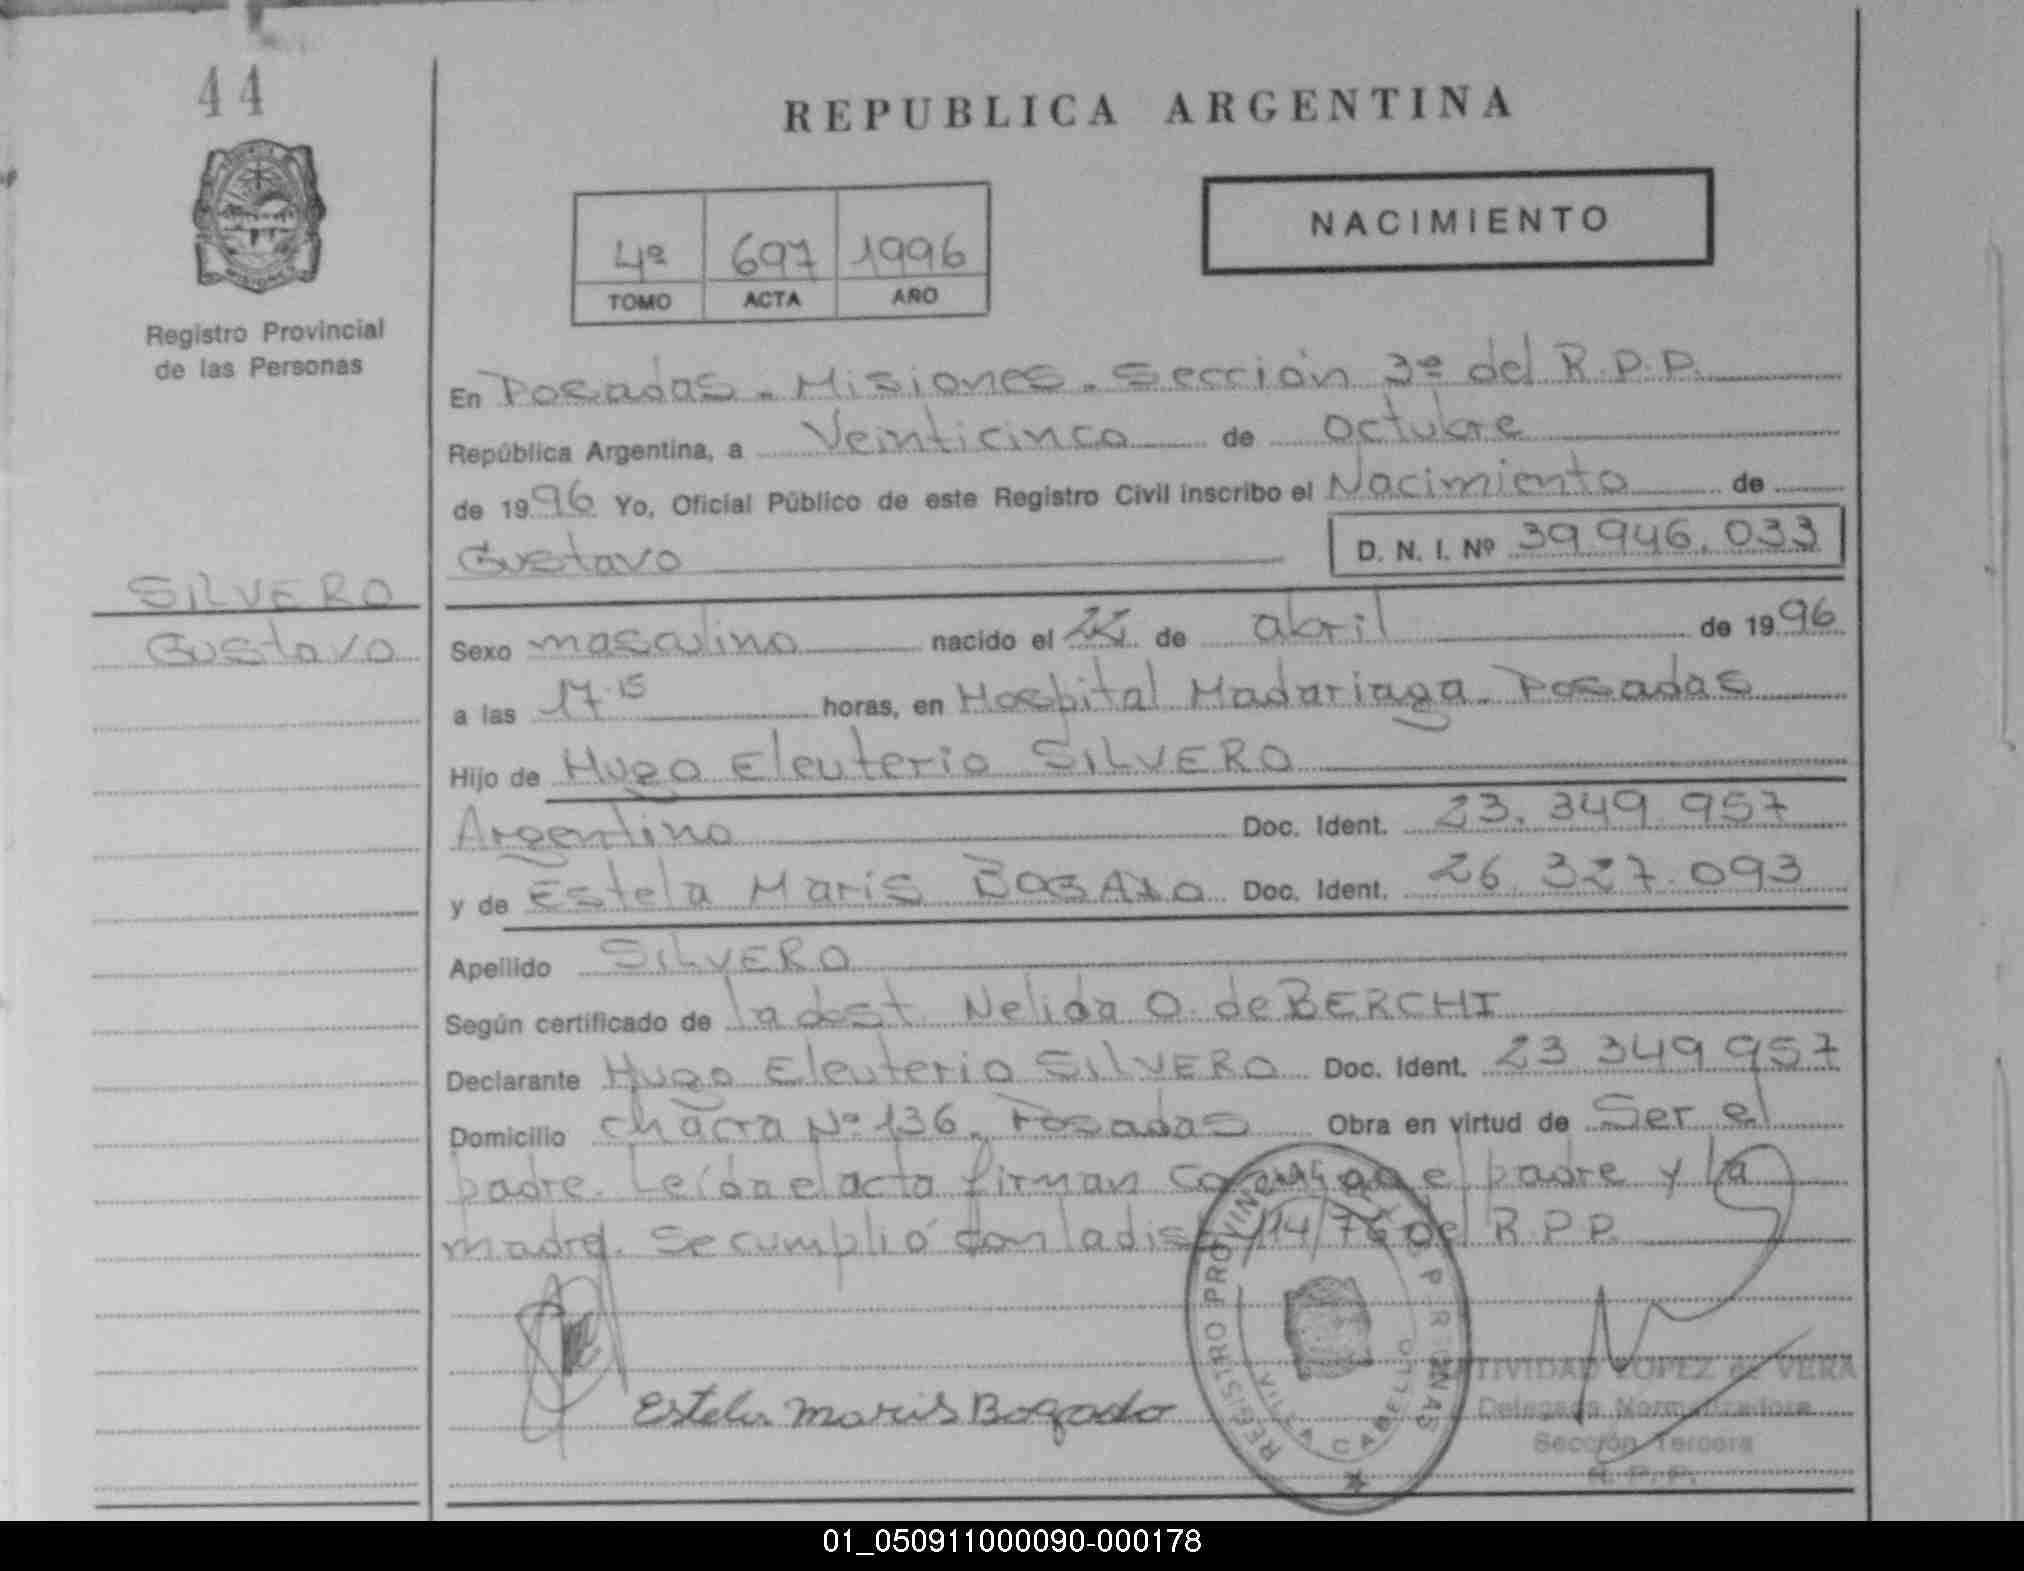 44
REPUBLICA ARGENTINA
NACIMIENTO
4º 697 1996
TOMO ACTA AÑO
Registro Provincial
de las Personas
En Posadas - Misiones - Sección 3º del R.P.P.
República Argentina, a Veinticinco de Octubre
de 1996 Yo, Oficial Público de este Registro Civil inscribo el Nacimiento de
Gustavo D. N. I. Nº 39 946.033
SILVERO
Gustavo
Sexo masculino nacido el de abril de 1996
a las 17.15 horas, en Hospital Madariaga - Posadas
Hijo de Hugo Eleuterio SILVERO
Argentino Doc. Ident. 23.349.957
y de Estela Maris BOGADO Doc. Ident. 26.327.093
Apellido SILVERO
Según certificado de la obst. Nelida O. de BERCHI
Declarante Hugo Eleuterio SILVERO Doc. Ident. 23 349 957
Domicilio Chacra Nº 136, Posadas Obra en virtud de Ser el
padre. Leída el acta firman conmigo el padre y la
madre. Se cumplió con la disp. 114/76 del R.P.P.
Estela Maris Bogado
REGISTRO PROVINCIAL DE LAS PERSONAS
VILLA CABELLO
NATIVIDAD LOPEZ de VERA
Delegada Normalizadora
Sección Tercera
R. P. P.
01_050911000090-000178